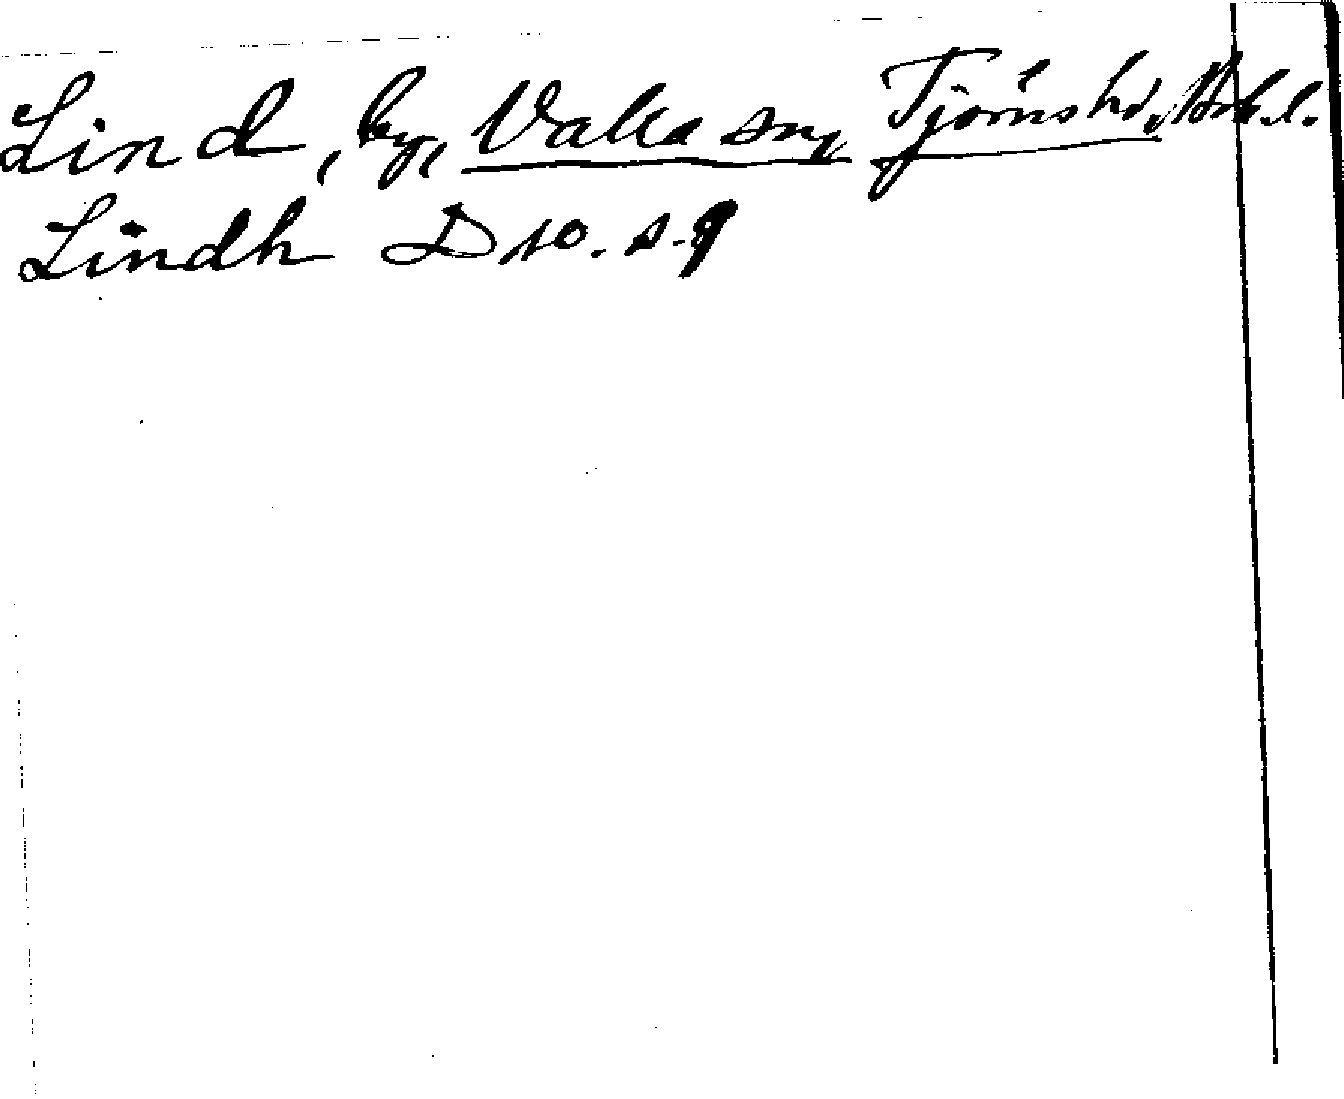 Lind, by, Valla sn, Tjörns hd, Boh. l.
Lindh D 10. s. 9